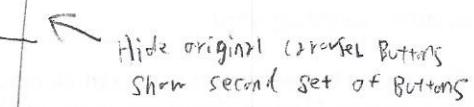 Hide original carousel Buttons
Show second set of Buttons